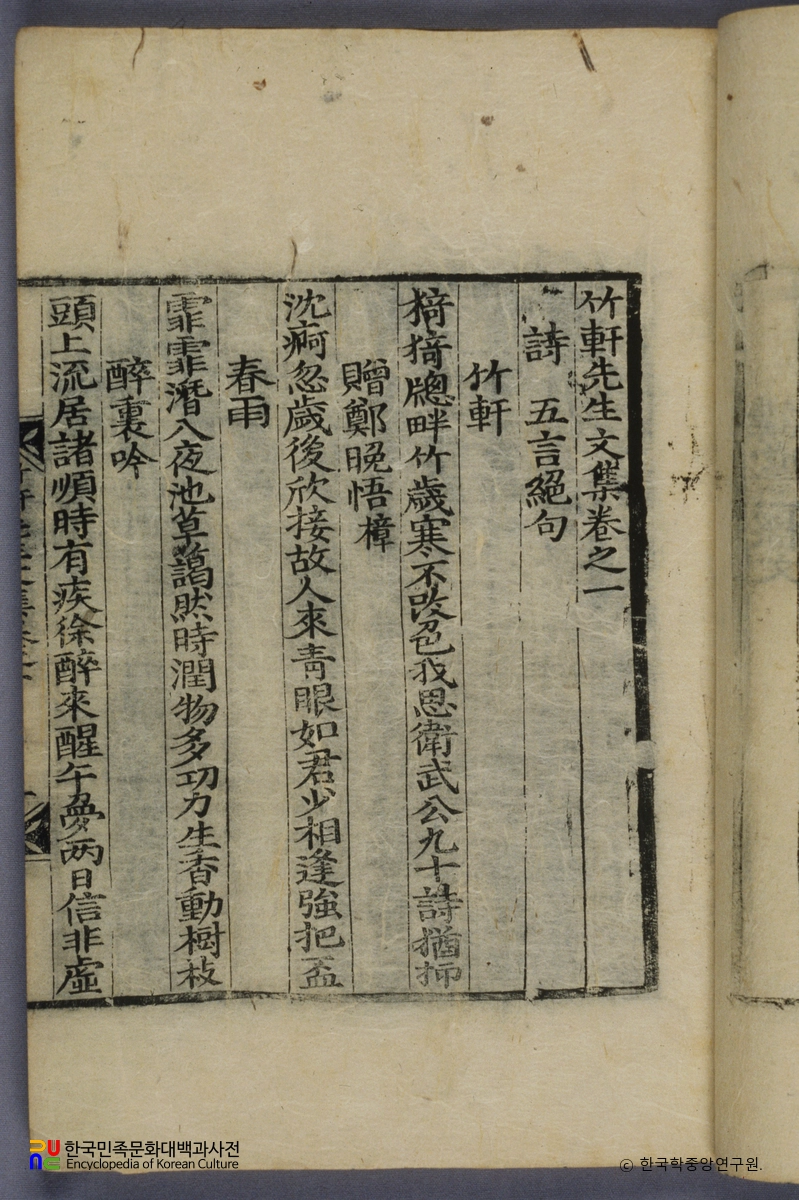 竹軒先生文集卷之一
詩 五言絕句
竹軒
猗猗牕畔竹歲寒不改色我思衛武公九十詩猶抑
贈鄭晚悟樟
沈痾忽歲後欣接故人來靑眼如君少相逢強把盃
春雨
霏霏潛入夜池草藹然時潤物多功力生香動樹枝
醉裏吟
頭上流居諸順時有疾徐醉來醒午夢两日信非虛
한국민족문화대백과사전
Encyclopedia of Korean Culture
© 한국학중앙연구원.